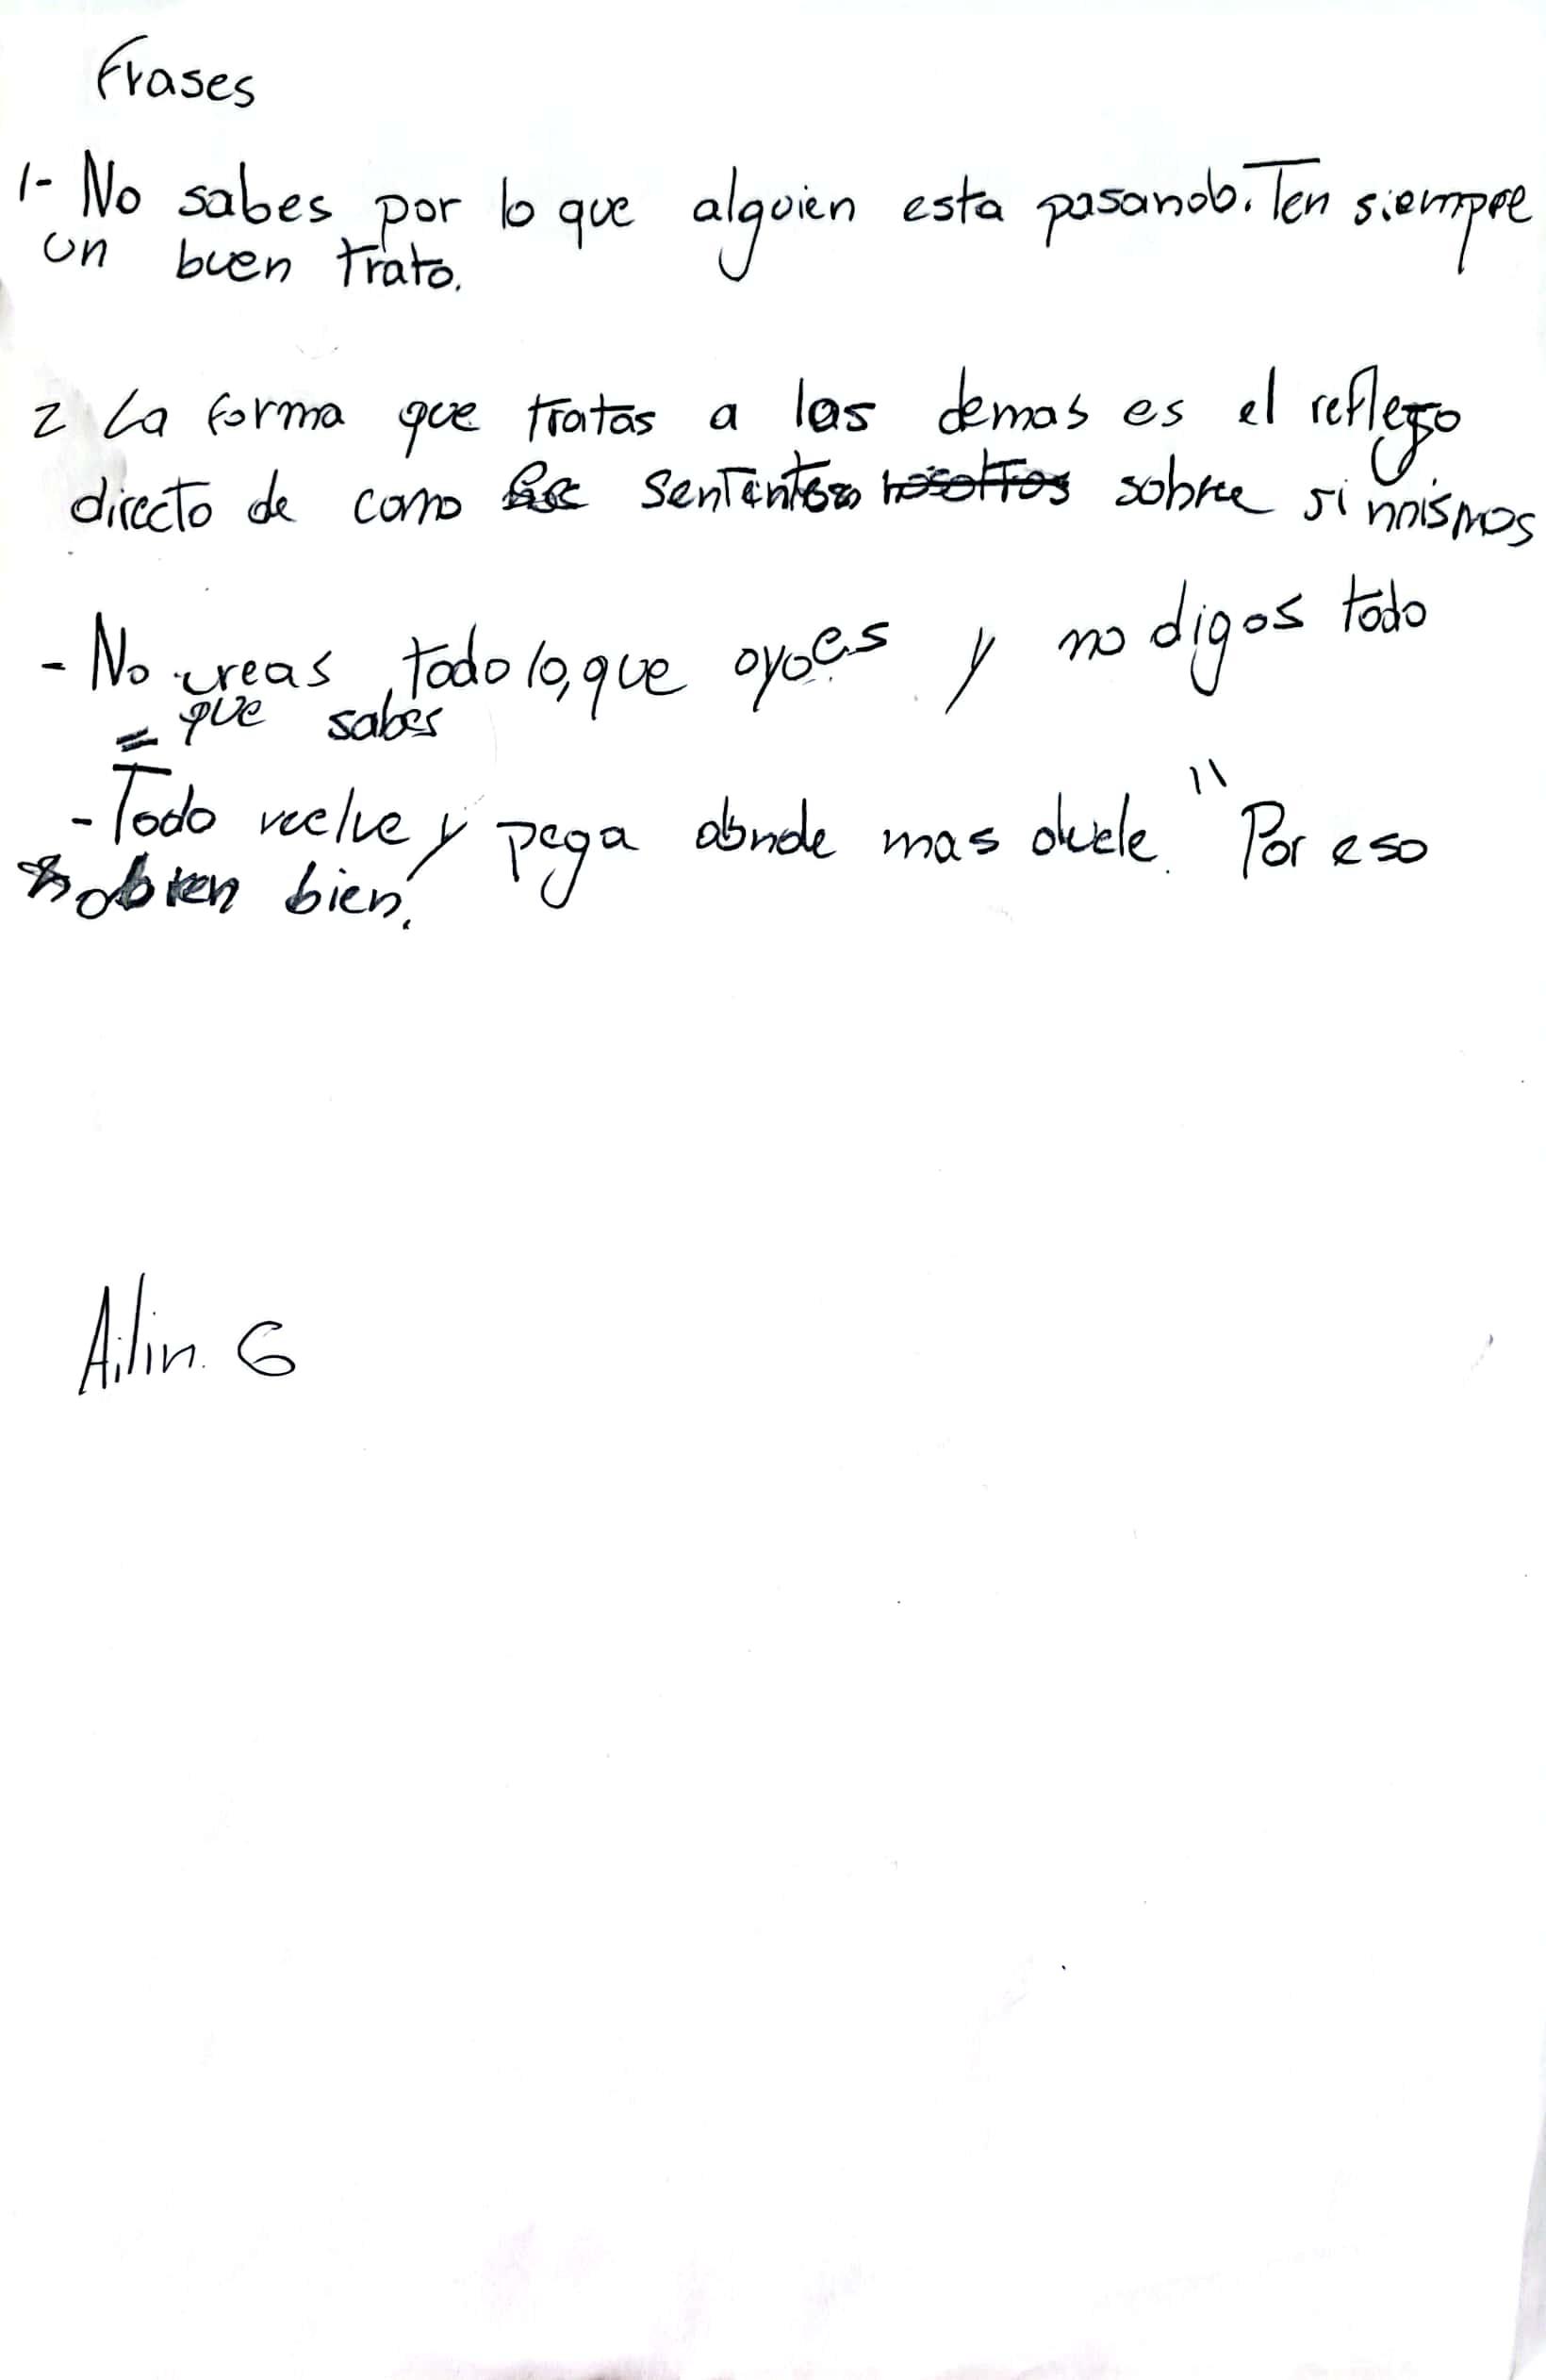 Frases
1- No sabes por lo que alguien esta pasando. Ten siempre
un buen trato.
2 La forma que tratas a los demas es el reflejo
directo de como nosotros sobre si mismos
- No creas todo lo que oyes y no digas todo
= que sabes
- Todo vuelve y pega donde mas duele. " Por eso
obren bien.
Ailin. G